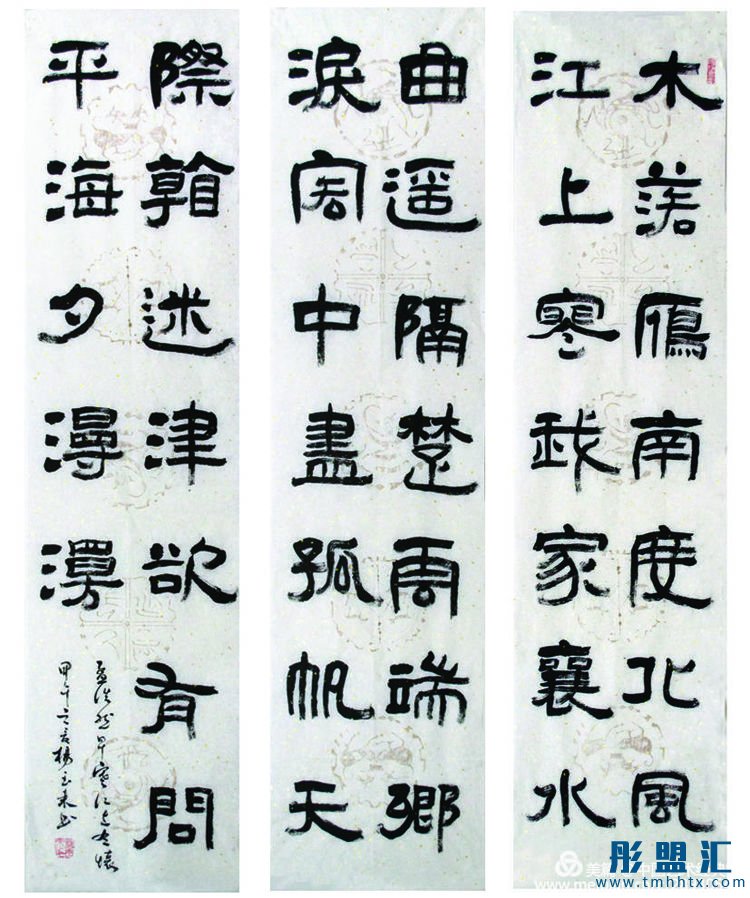 木落鴈南度北風
江上寒我家襄水
曲遥隔楚雲端鄉
淚客中盡孤帆天
際看迷津欲有問
平海夕漫漫
孟浩然早寒江上有懷
甲午楊玉来书
彤盟汇
www.tmhhtx.com